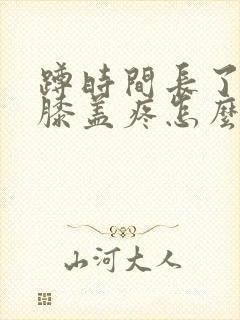 蹲時間長了
膝盖疼怎麼
山河大人